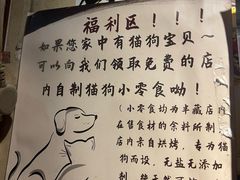 福利区！！！
如果您家中有猫狗宝贝~
可以向我们领取免费的店
内自制猫狗小零食呦！
（小零食均为半藏店内
在售食材的余料所制
店内亲自烘烤，专为猫
狗而设，无盐无添加